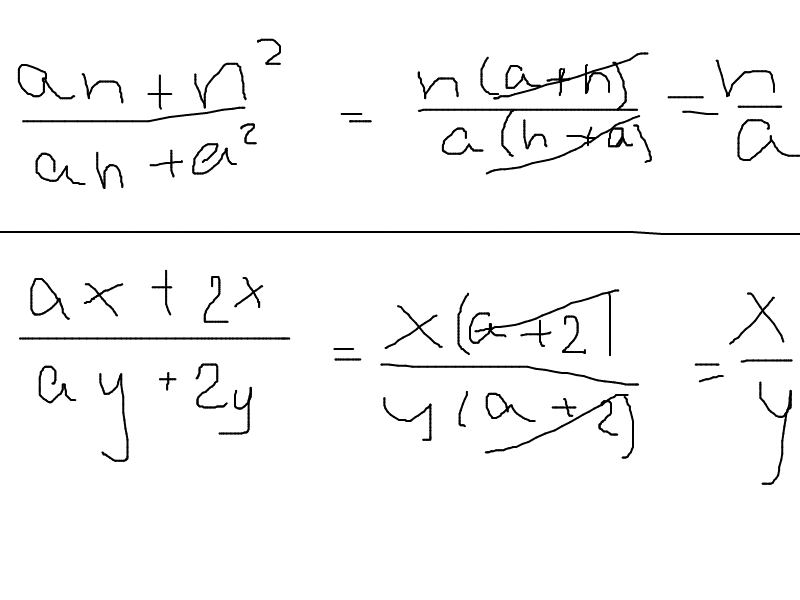 an + n²
an + a²
= n(a+n)
a(n+a)
= n
a
ax + 2x
ay + 2y
= x(a+2
y(a+2)
= x
y